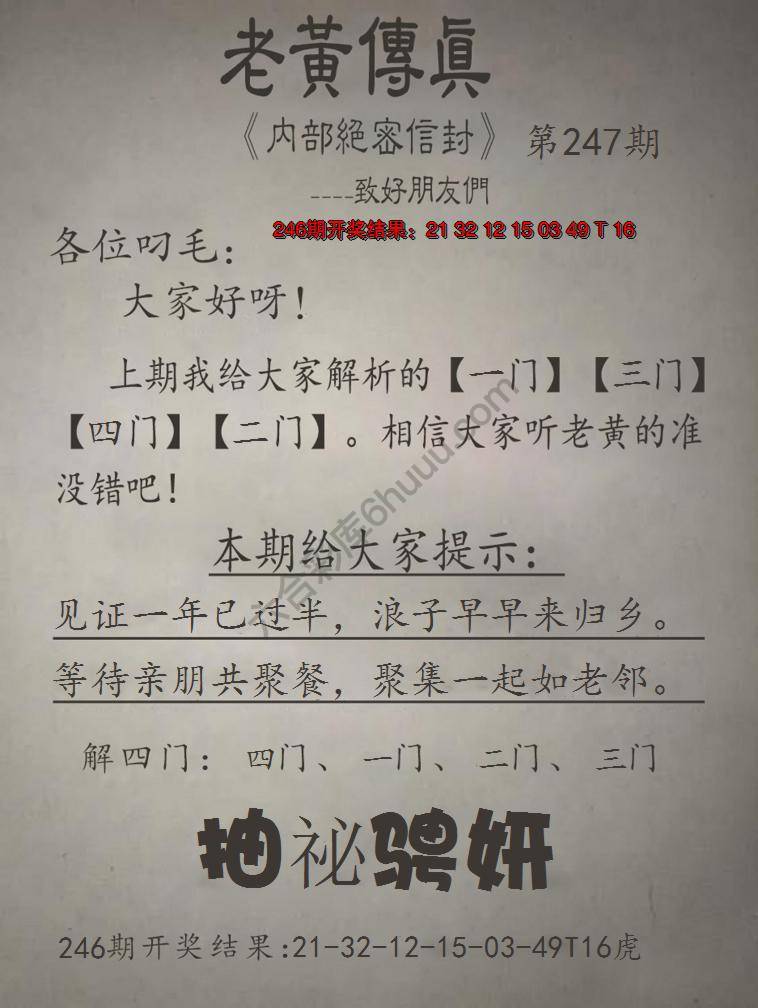 老黃傳眞
《内部絕密信封》 第247期
----致好朋友們
246期开奖结果：21 32 12 15 03 49 T 16
各位叼毛：
大家好呀！
上期我给大家解析的【一门】【三门】
【四门】【二门】。相信大家听老黄的准
没错吧！
本期给大家提示：
见证一年已过半，浪子早早来归乡。
等待亲朋共聚餐，聚集一起如老邻。
解四门： 四门、 一门、 二门、 三门
抽祕骋妍
246期开奖结果:21-32-12-15-03-49T16虎
六合彩库6huuu.com